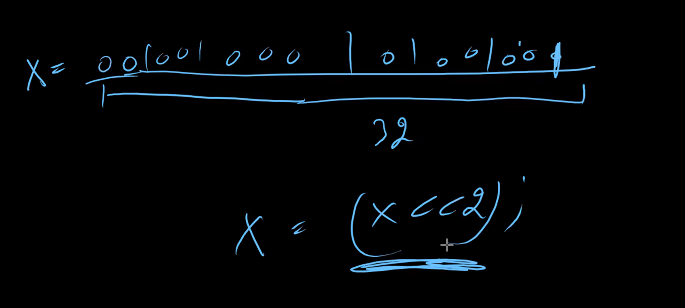 X = 001001000101001001
32
X = (X <<2);